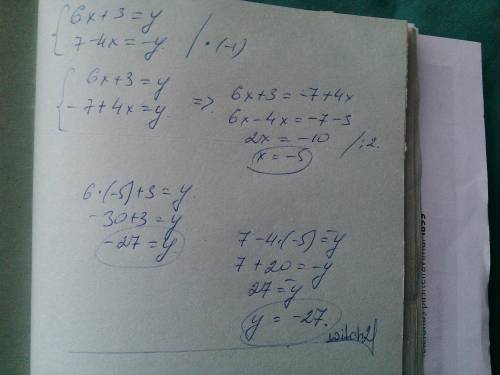 6x+3=y
7-4x=-y /·(-1)
6x+3=y
-7+4x=y => 6x+3=-7+4x
6x-4x=-7-3
2x=-10 /:2
x=-5
6·(-5)+3=y
-30+3=y
-27=y
7-4·(-5)=-y
7+20=-y
27=-y
y=-27.